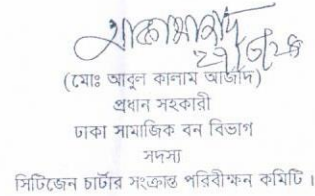 (মোঃ আবুল কালাম আজাদ)
প্রধান সহকারী
ঢাকা সামাজিক বন বিভাগ
সদস্য
সিটিজেন চার্টার সংক্রান্ত পরিবীক্ষন কমিটি।